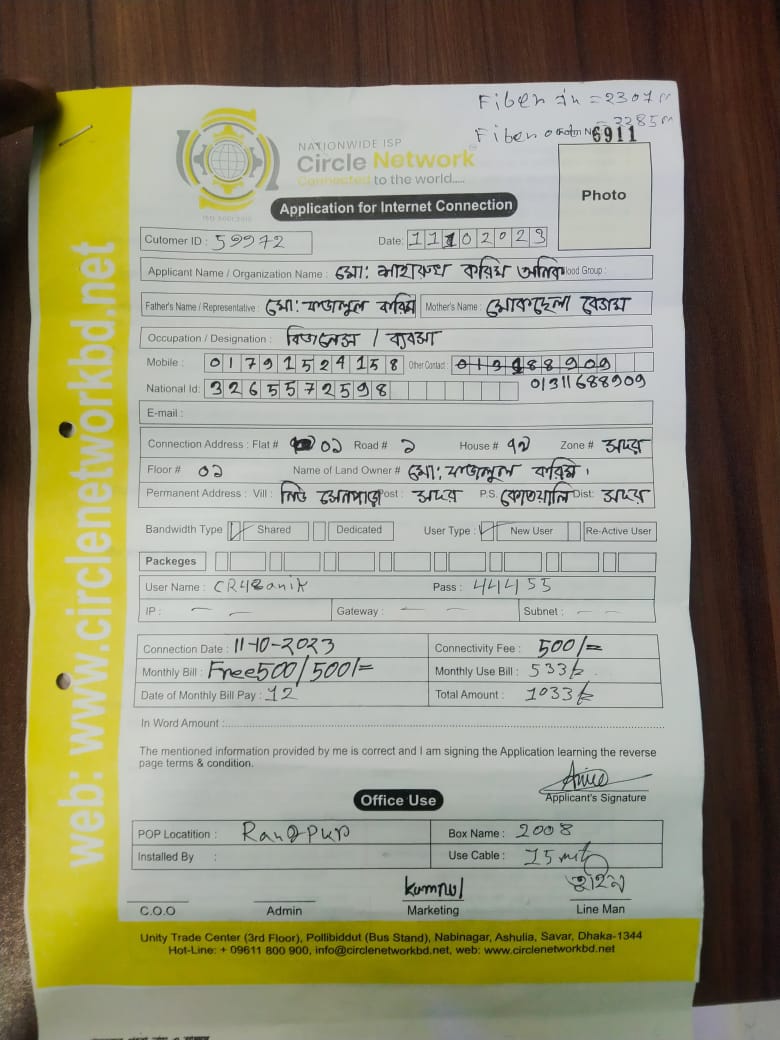 Fiben in = 2307 m
Fiben out = 2285 m
Form No 6911
NATIONWIDE ISP
Circle Network
Connected to the world.....
ISO 9001:2015
Application for Internet Connection
Photo
Cutomer ID : 59972
Date: 11102023
Applicant Name / Organization Name : মো: শাহারুখ করিম অনিক Blood Group :
Father's Name / Representative : মো: ফজলুল করিম Mother's Name : মোকছেলা বেগম
Occupation / Designation : বিজনেস / ব্যবসা
Mobile : 01791524158 Other Contact :
National Id: 3265572598 01311688909
E-mail :
Connection Address : Flat # 02 Road # 2 House # 12 Zone # সদর
Floor # 02 Name of Land Owner # মো: ফজলুল করিম
Permanent Address : Vill : নিউ সেনপাড়া Post : সদর P.S. কোতয়ালি Dist: সদর
Bandwidth Type Shared Dedicated User Type : New User Re-Active User
Packeges
User Name : CR48anik Pass : 444 55
IP : — — Gateway : — — Subnet : — —
Connection Date : 11-10-2023 Connectivity Fee : 500/=
Monthly Bill : Free500/500/= Monthly Use Bill : 533/=
Date of Monthly Bill Pay : 12 Total Amount : 1033/=
In Word Amount :
The mentioned information provided by me is correct and I am signing the Application learning the reverse
page terms & condition.
Applicant's Signature
Office Use
POP Locatition : Rangpur Box Name : 2008
Installed By : Use Cable : 15 mit
C.O.O Admin Marketing Line Man
Unity Trade Center (3rd Floor), Pollibiddut (Bus Stand), Nabinagar, Ashulia, Savar, Dhaka-1344
Hot-Line: + 09611 800 900, info@circlenetworkbd.net, web: www.circlenetworkbd.net
web: www.circlenetworkbd.net